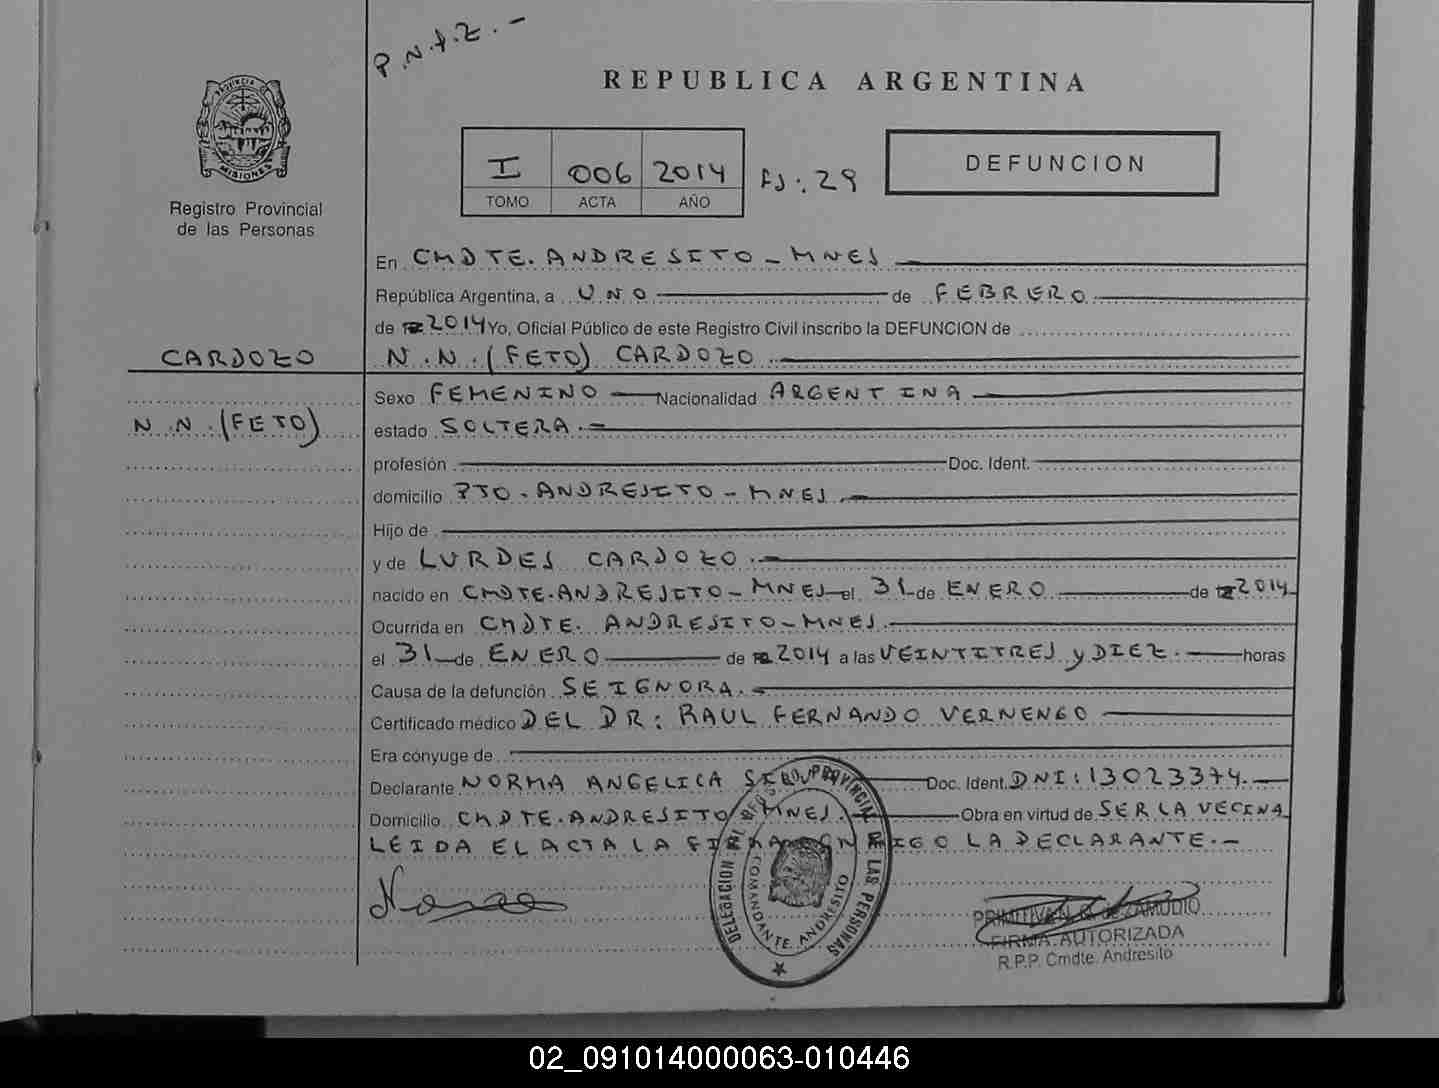 P.N.I.Z.-
REPUBLICA ARGENTINA
PROVINCIA DE MISIONES
I 006 2014 FJ: 29
TOMO ACTA AÑO
DEFUNCION
Registro Provincial
de las Personas
En CMDTE. ANDRESITO - MNES
República Argentina, a UNO de FEBRERO
de 2014 Yo, Oficial Público de este Registro Civil inscribo la DEFUNCION de
CARDOZO N.N. (FETO) CARDOZO
Sexo FEMENINO Nacionalidad ARGENTINA
N.N. (FETO) estado SOLTERA.-
profesión Doc. Ident.
domicilio PTO. ANDRESITO - MNES.
Hijo de
y de LURDES CARDOZO.
nacido en CMDTE. ANDRESITO - MNES el 31 de ENERO de 2014
Ocurrida en CMDTE. ANDRESITO - MNES.
el 31 de ENERO de 2014 a las VEINTITRES y DIEZ. horas
Causa de la defunción SE IGNORA.
Certificado médico DEL DR: RAUL FERNANDO VERNENGO
Era cónyuge de
Declarante NORMA ANGELICA Doc. Ident. DNI: 13023374.
Domicilio CMDTE. ANDRESITO MNES. Obra en virtud de SER LA VECINA
LEIDA EL ACTA LA FIRMA CONMIGO LA DECLARANTE.-
DELEGACION DEL REG. PROVINCIAL DE LAS PERSONAS
COMANDANTE ANDRESITO
PRIMITIVA N. de ZAMUDIO
FIRMA AUTORIZADA
R.P.P. Cmdte. Andresito
02_091014000063-010446